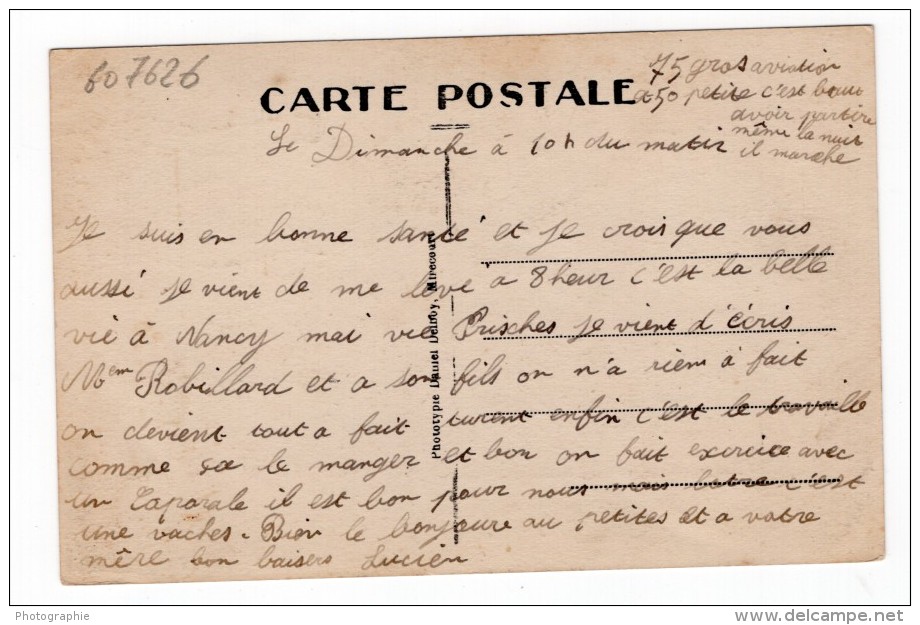 607626
75 gros aviation
et 50 petite c'est beau
avoir partire
même la nuit
il marache
CARTE POSTALE
Le Dimanche à 10h du matin
Je suis en bonne santé et je crois que vous
aussi je vient de me levé à 8 heur c'est la belle
vie à Nancy mai vie Prisches je vient d'écris
Mem Robillard et a son fils on n'a rien à fait
on devient tout a fait turent enfin c'est le travaille
comme sa le manger et bon on fait exircice avec
un Caporale il est bon pour nous mais lotre c'est
une vaches. Bien le bonjoure au petites et a votre
mère bon baisers Lucien
Phototypie Daniel Delboy, Mirecourt
Photographie
www.delcampe.net